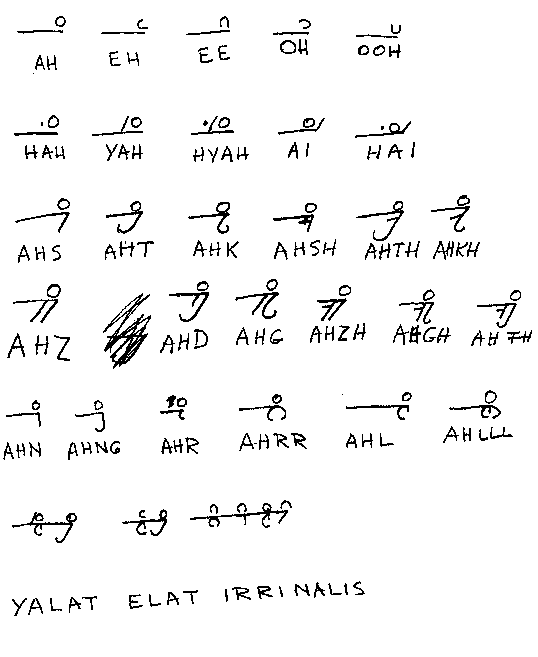 AH EH EE OH OOH
HAH YAH HYAH AI HAI
AHS AHT AHK AHSH AHTH AHKH
AHZ AHD AHG AHZH AHGH
AHN AHNG AHR AHRR AHL AHLLL
YALAT ELAT IRRINALIS